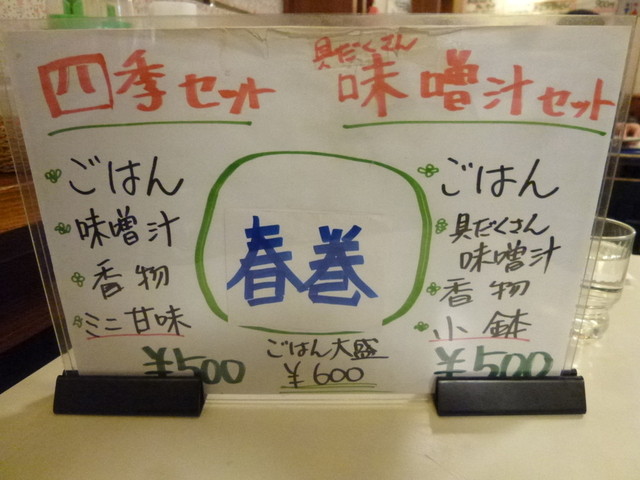 四季セット
ごはん
味噌汁
香物
ミニ甘味
¥500
春巻
ごはん大盛
¥600
具だくさん
味噌汁セット
ごはん
具だくさん
味噌汁
香物
小鉢
¥500